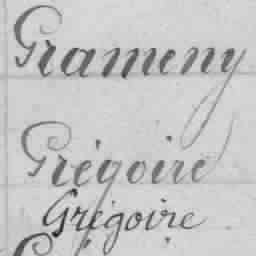 Grameny
Grégoire
Grégoire